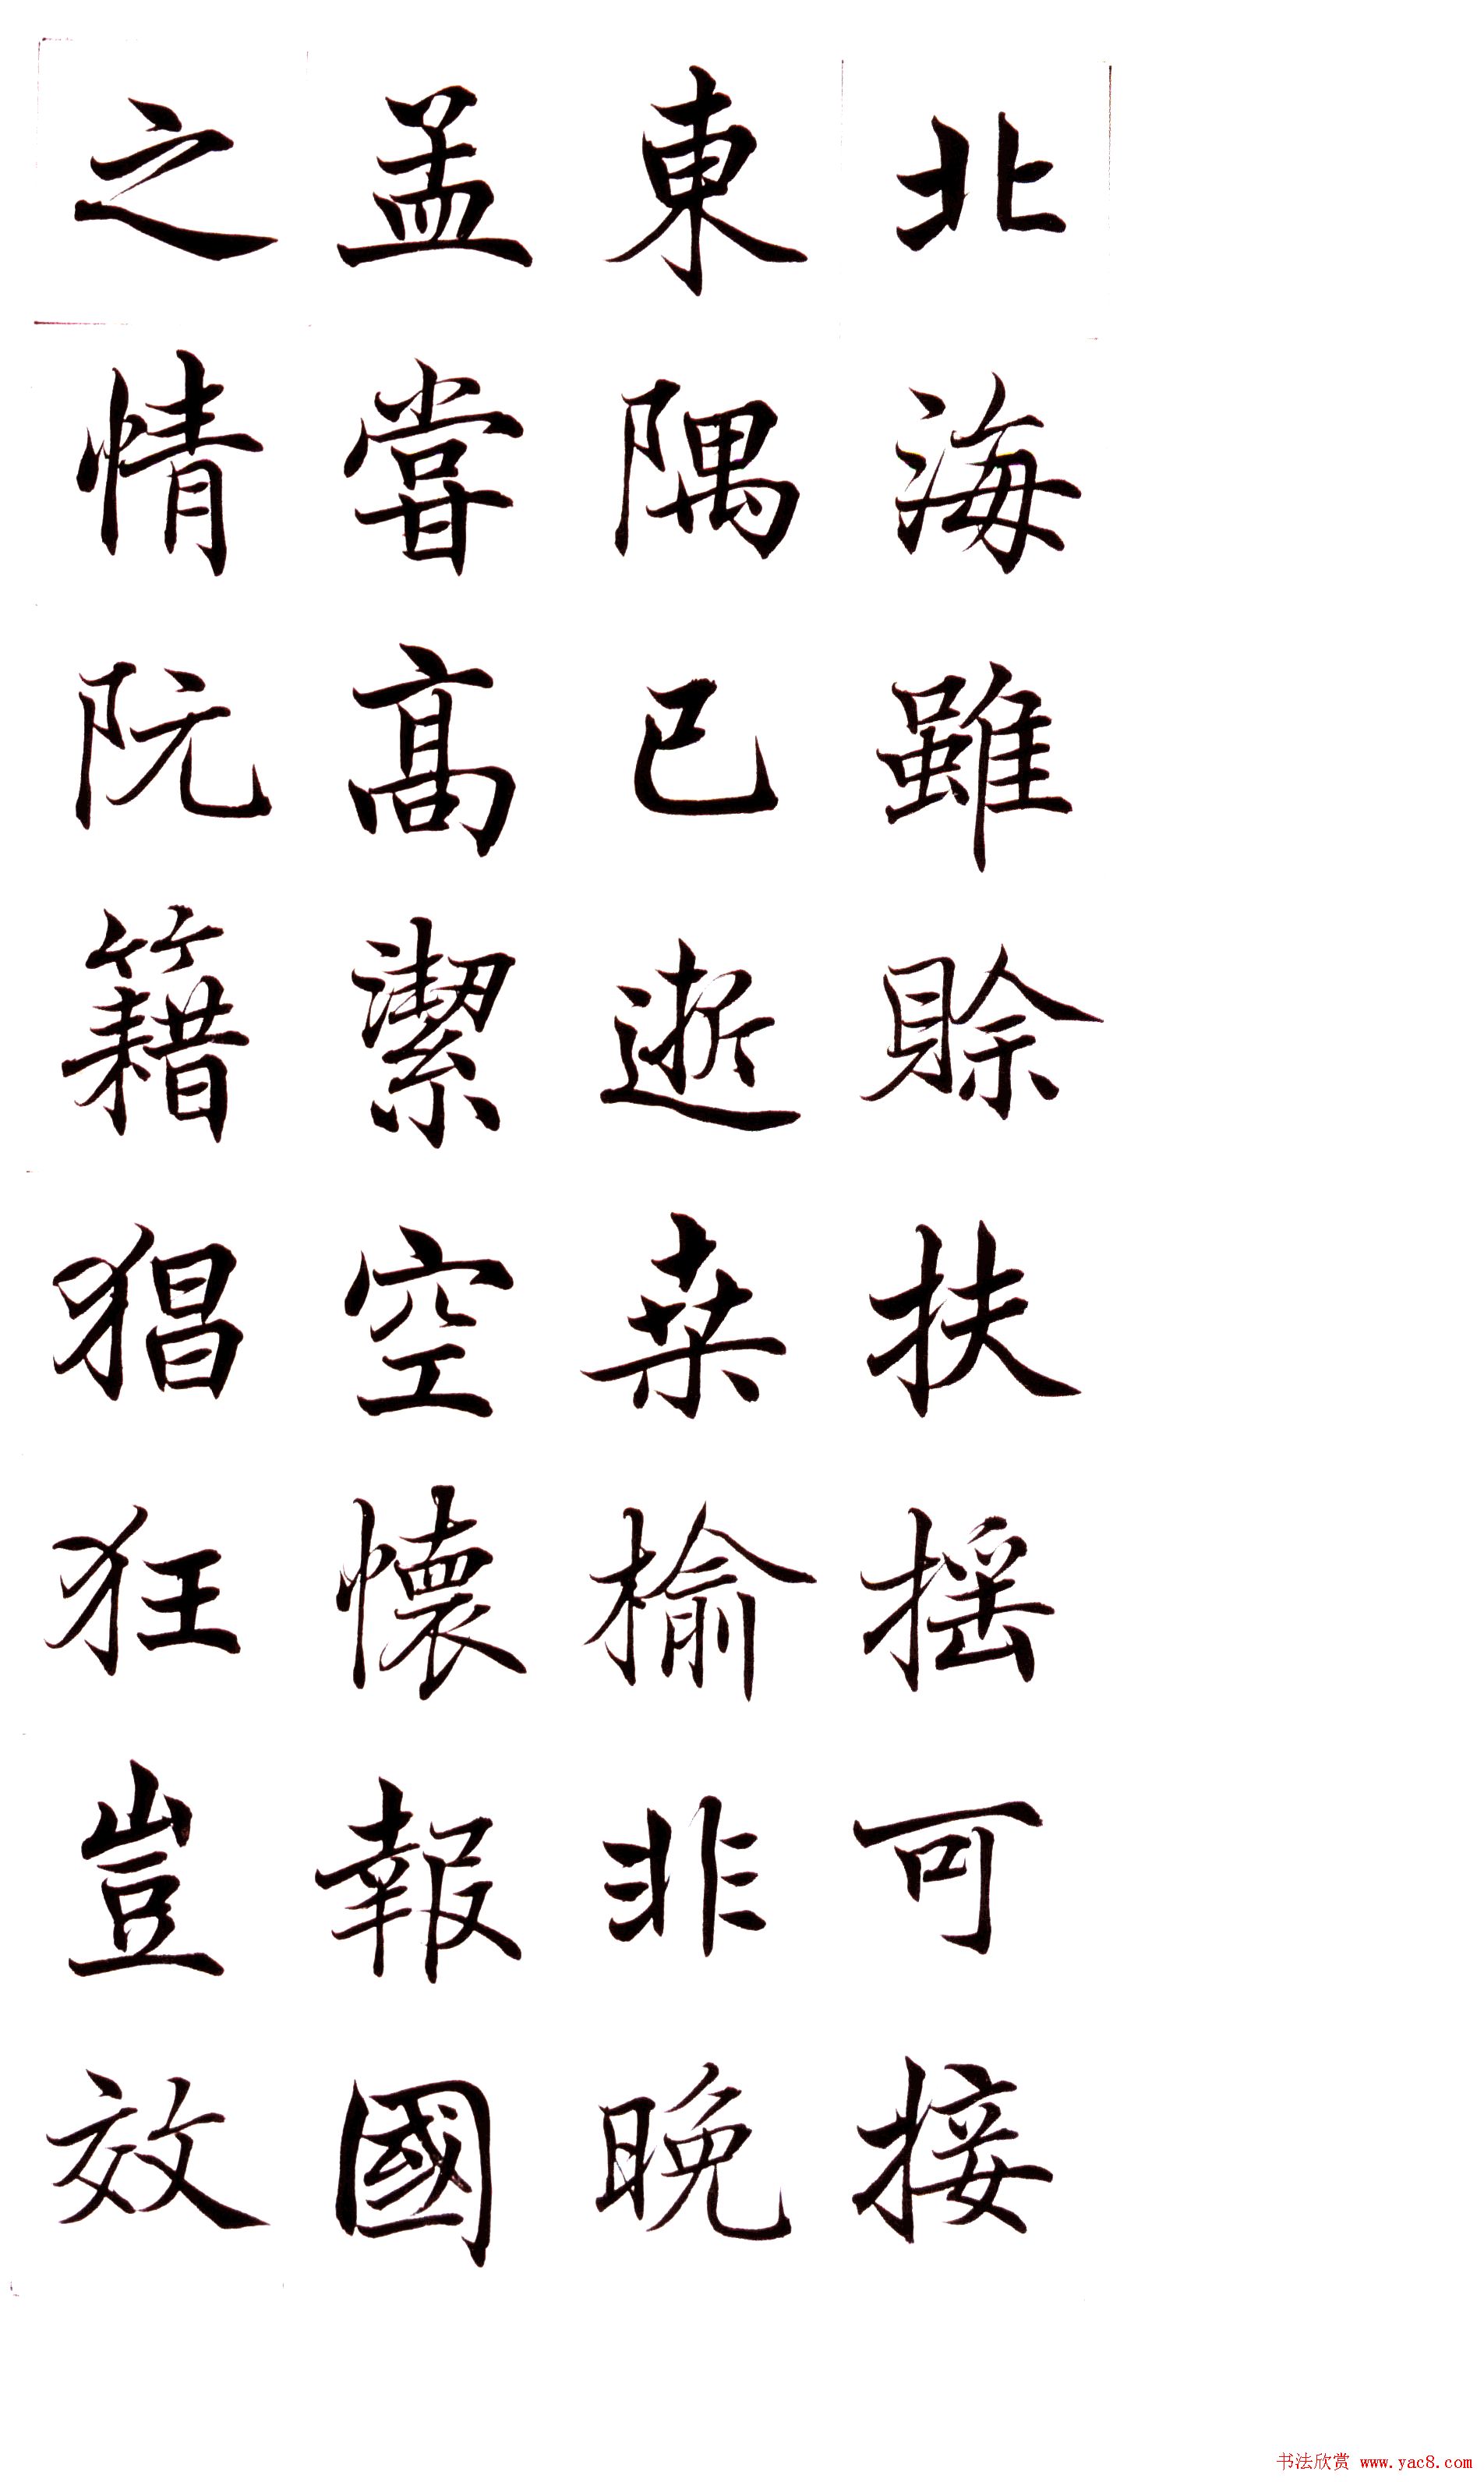 北海雖賒扶摇可接
東隅已逝桒榆非晚
孟嘗高潔空懷報國
之情阮籍猖狂豈效
书法欣赏 www.yac8.com